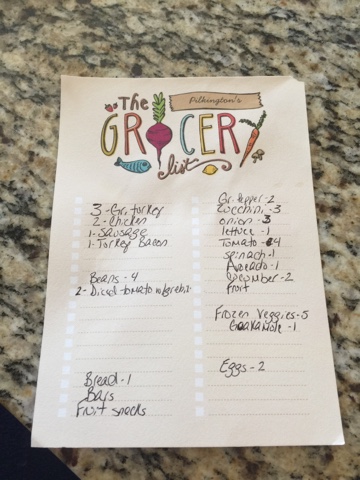 The
Pilkington's
GROCERY
list
3 - Gr. turkey
2 - Chicken
1 - Sausage
1 - Turkey Bacon
Beans - 4
2 - Diced tomato w/
Bread - 1
Bars
Fruit snacks
Gr. Pepper - 2
Zucchini - 3
onion - 3
lettuce - 1
Tomato - 4
spinach - 1
Avocado - 1
Cucumber - 2
Fruit
Frozen Veggies - 5
Guakamole - 1
Eggs - 2